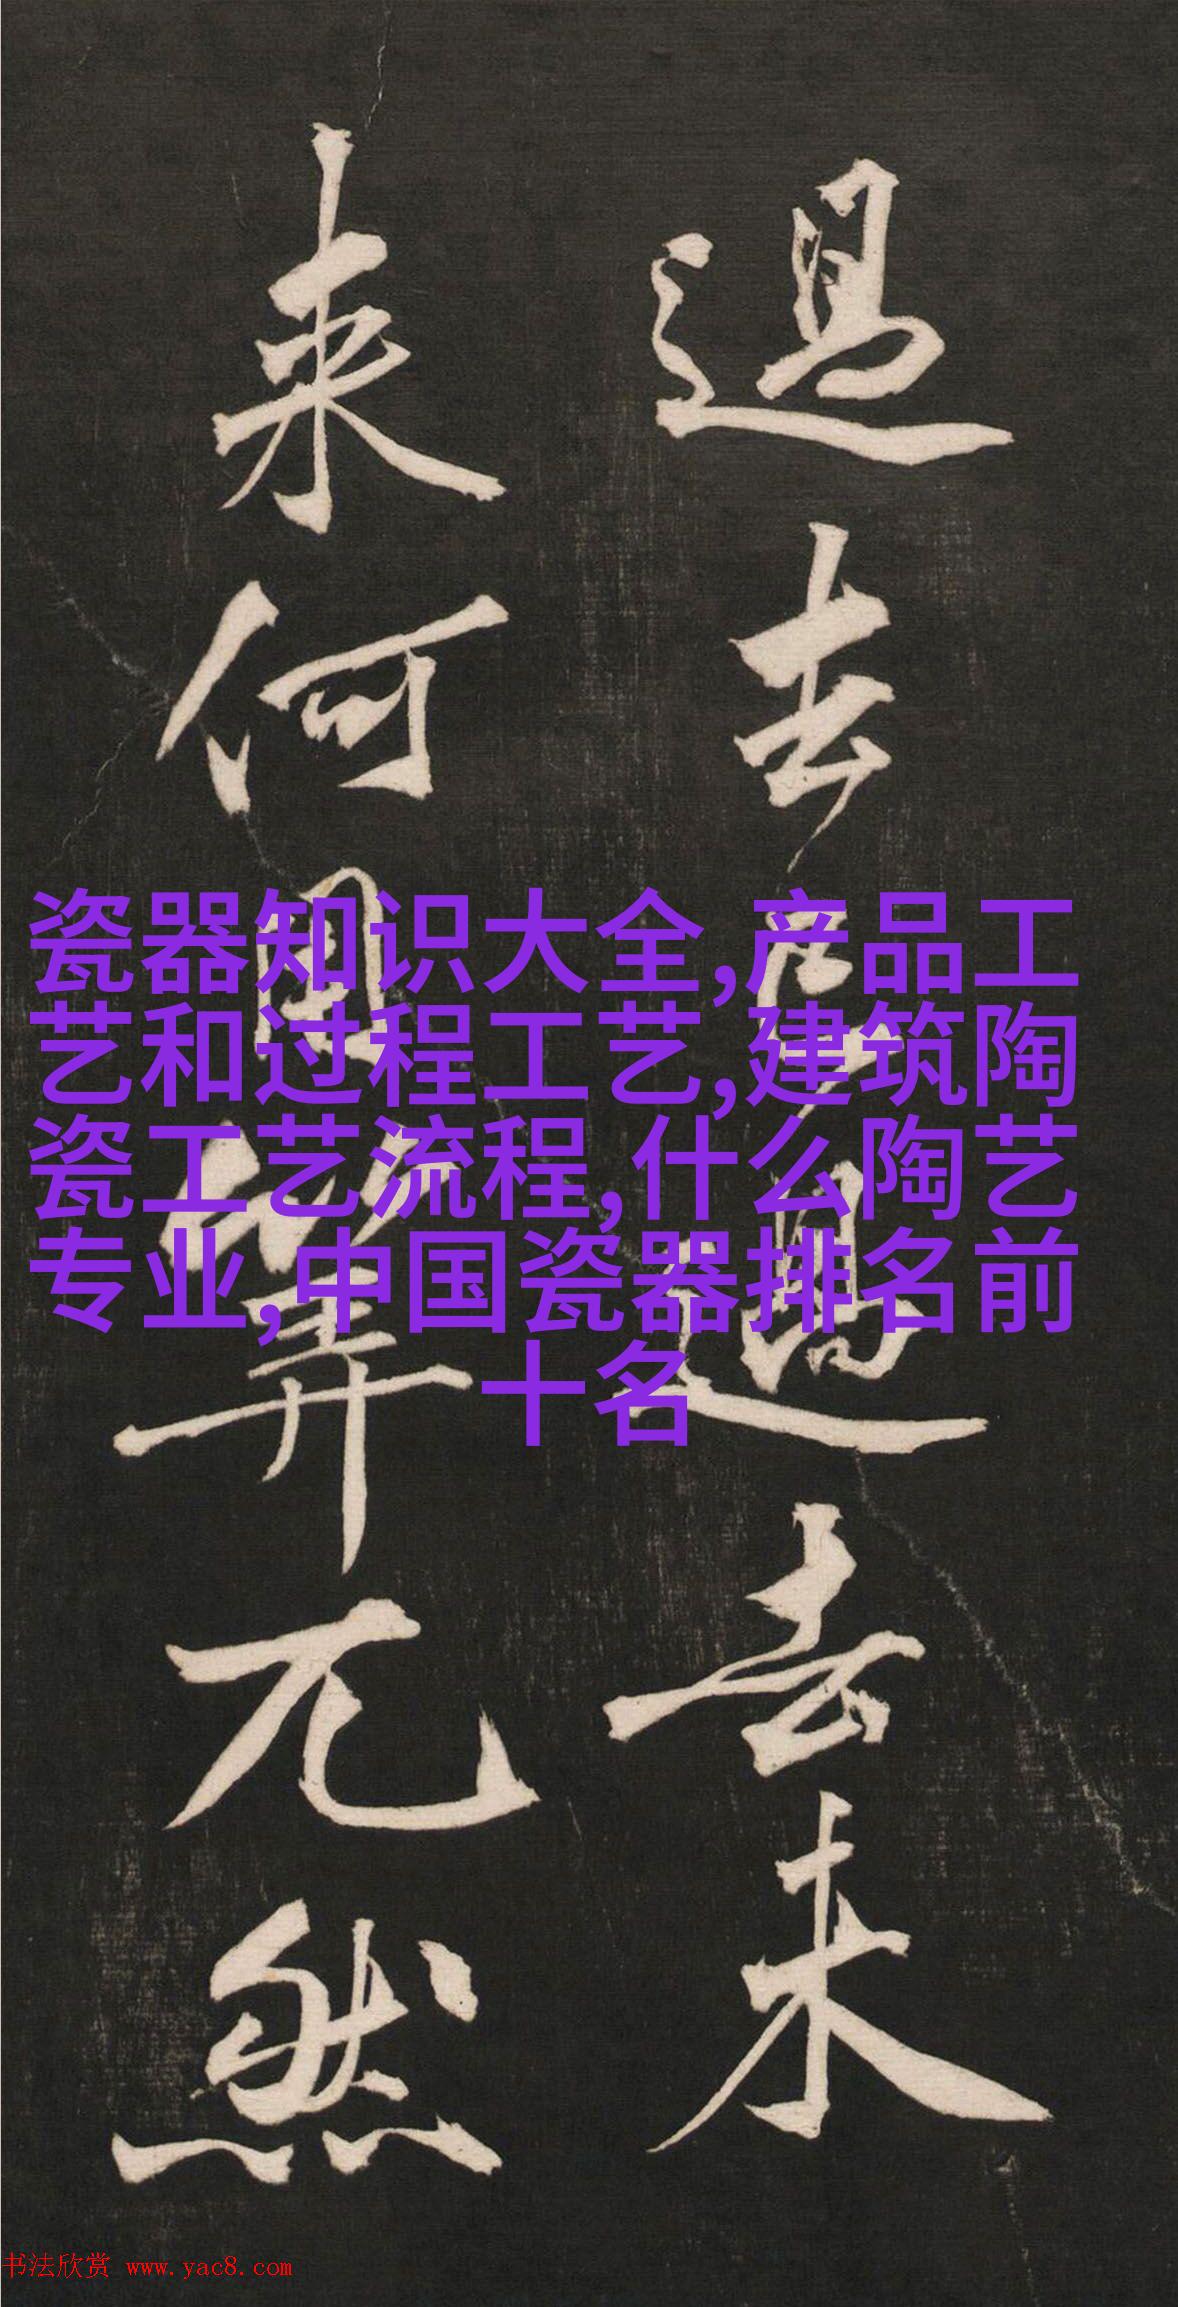 過去過去未
来何筭兀然
瓷器知识大全,产品工
艺和过程工艺,建筑陶
瓷工艺流程,什么陶艺
专业,中国瓷器排名前
十名
书法欣赏 www.yac8.com